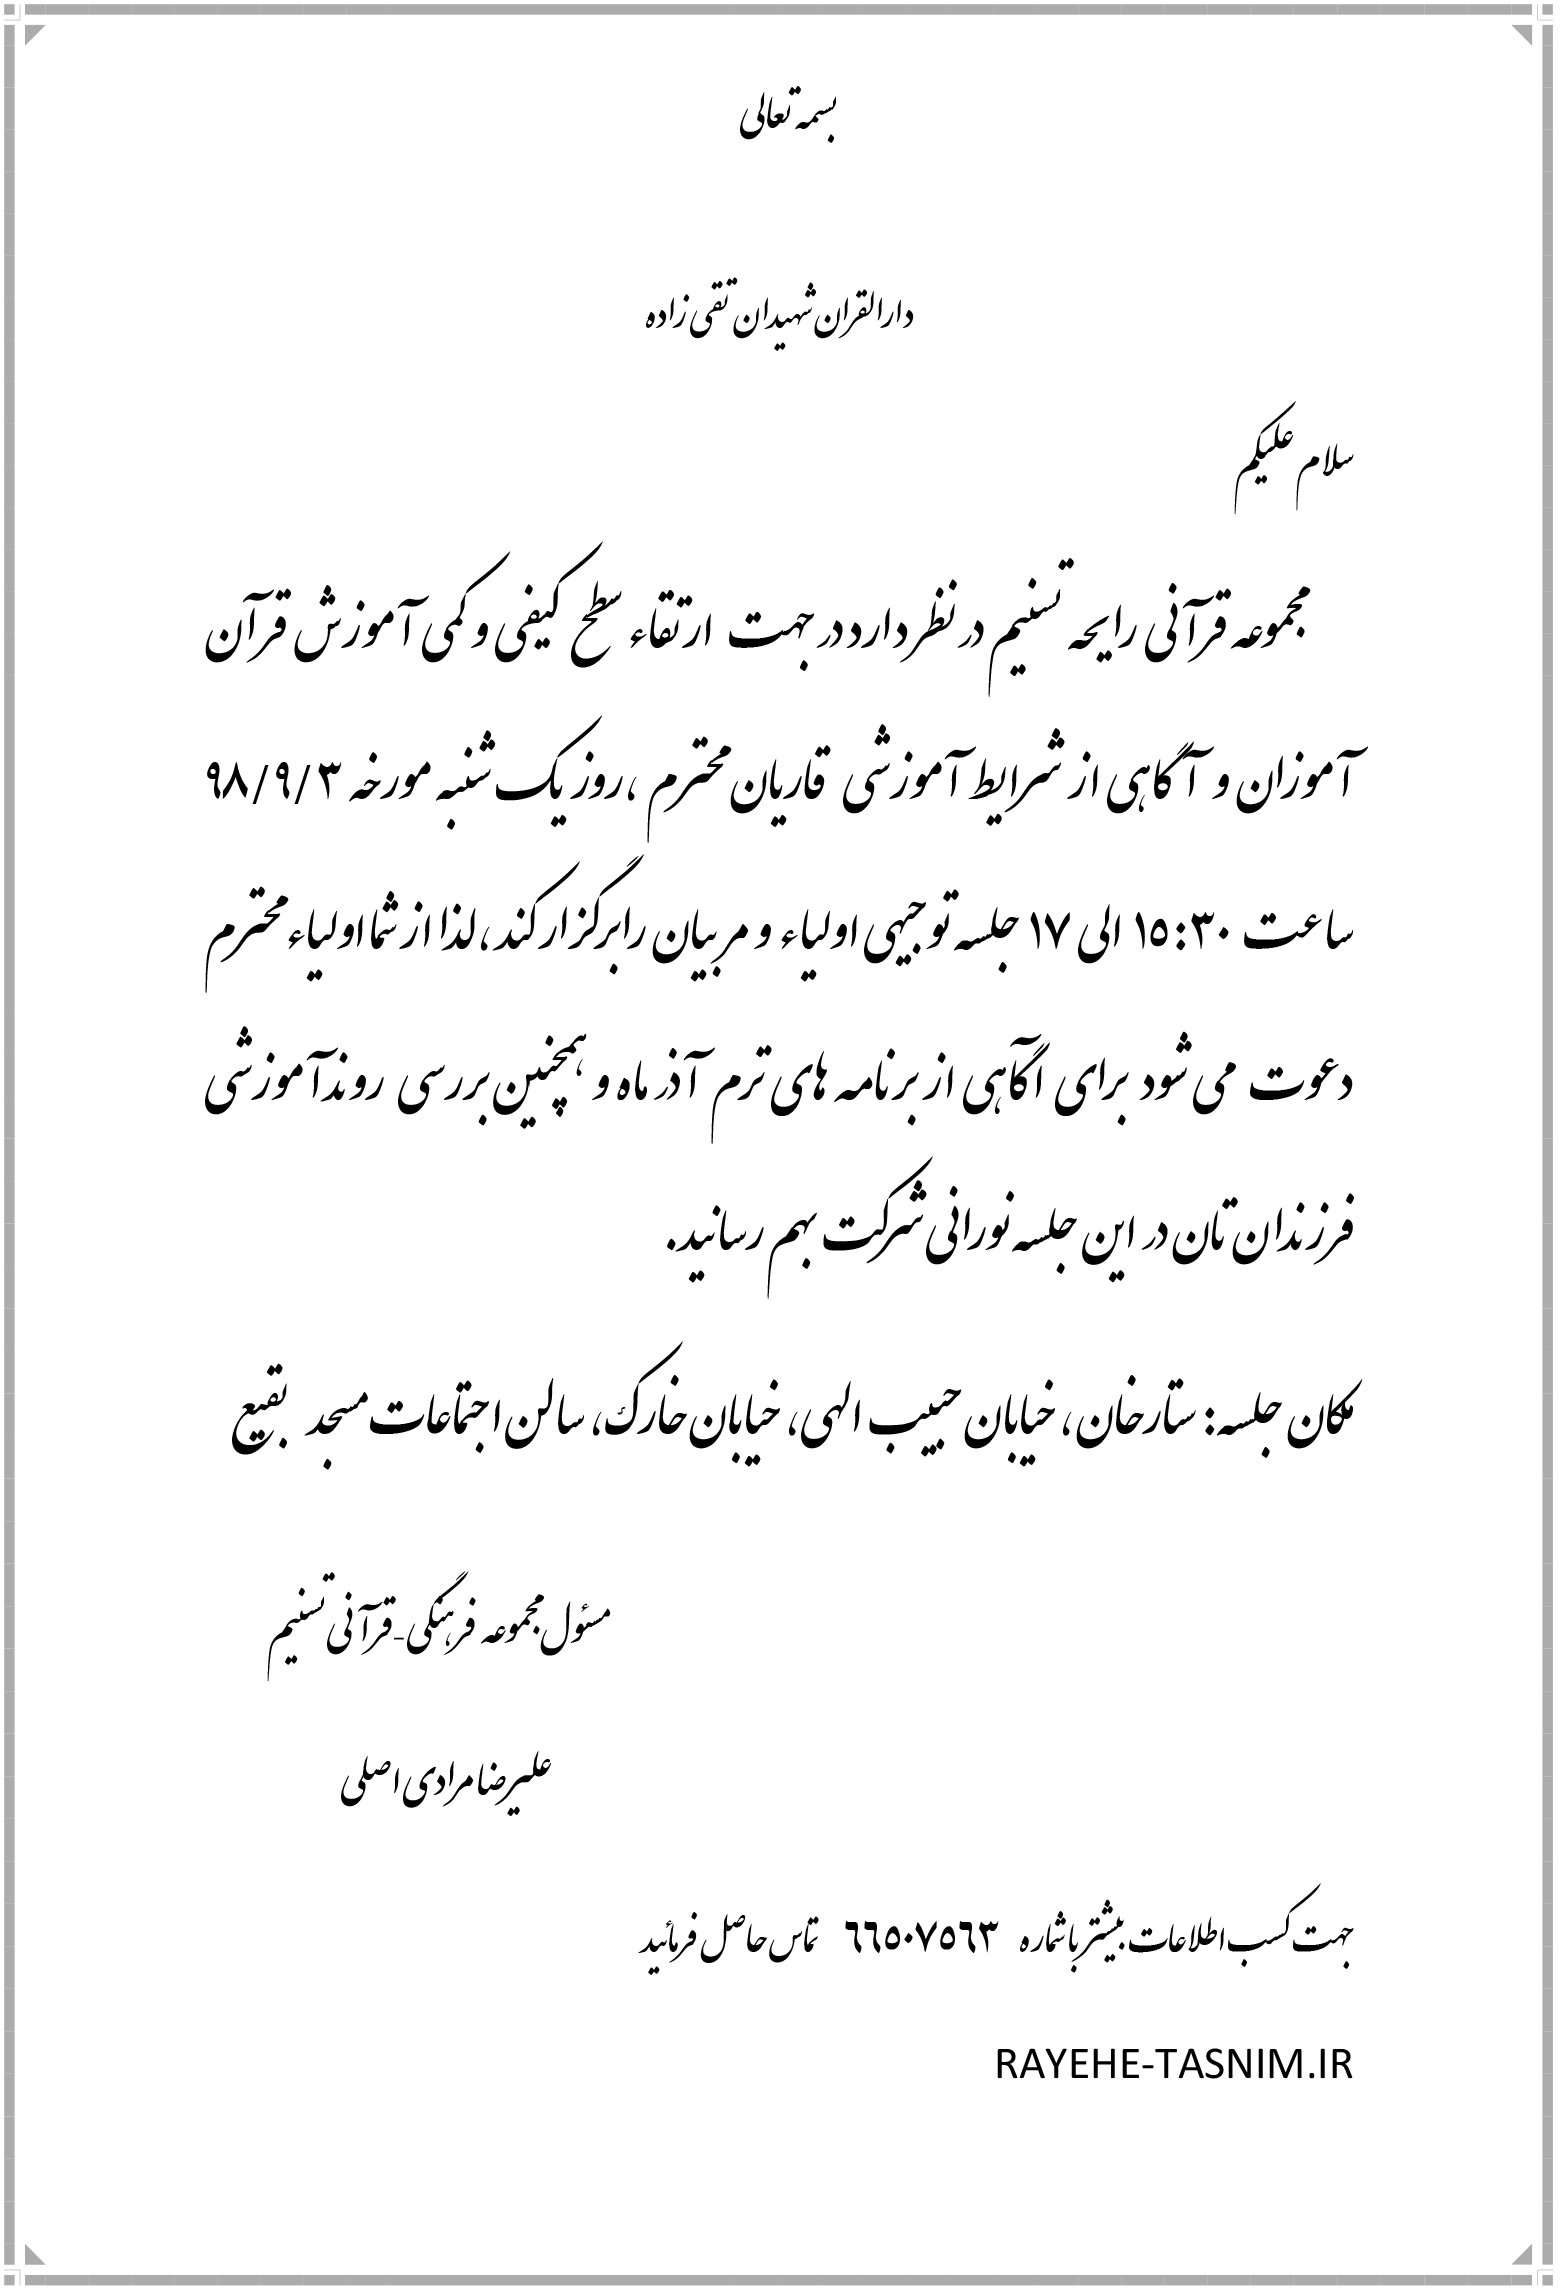 بسمه تعالی
دارالقران شهیدان تقی زاده
سلام علیکم
مجموعه قرآنی رایحه تسنیم در نظر دارد در جهت ارتقاء سطح کیفی و کمی آموزش قرآن
آموزان و آگاهی از شرایط آموزشی قاریان محترم ،روز یک شنبه مورخه ۹۸/۹/۳
ساعت ۱۵:۳۰ الی ۱۷ جلسه توجیهی اولیاء و مربیان را برگزار کند،لذا از شما اولیاء محترم
دعوت می شود برای اگآهی از برنامه های ترم آذر ماه و همچنین بررسی روند آموزشی
فرزندان تان در این جلسه نورانی شرکت بهم رسانید.
مکان جلسه: ستارخان، خیابان حبیب الهی، خیابان خارک، سالن اجتماعات مسجد بقیع
مسئول مجموعه فرهنگی-قرآنی تسنیم
علیرضا مرادی اصلی
جهت کسب اطلاعات بیشتر با شماره ۶۶۵۰۷۵۶۳ تماس حاصل فرمائید
RAYEHE-TASNIM.IR